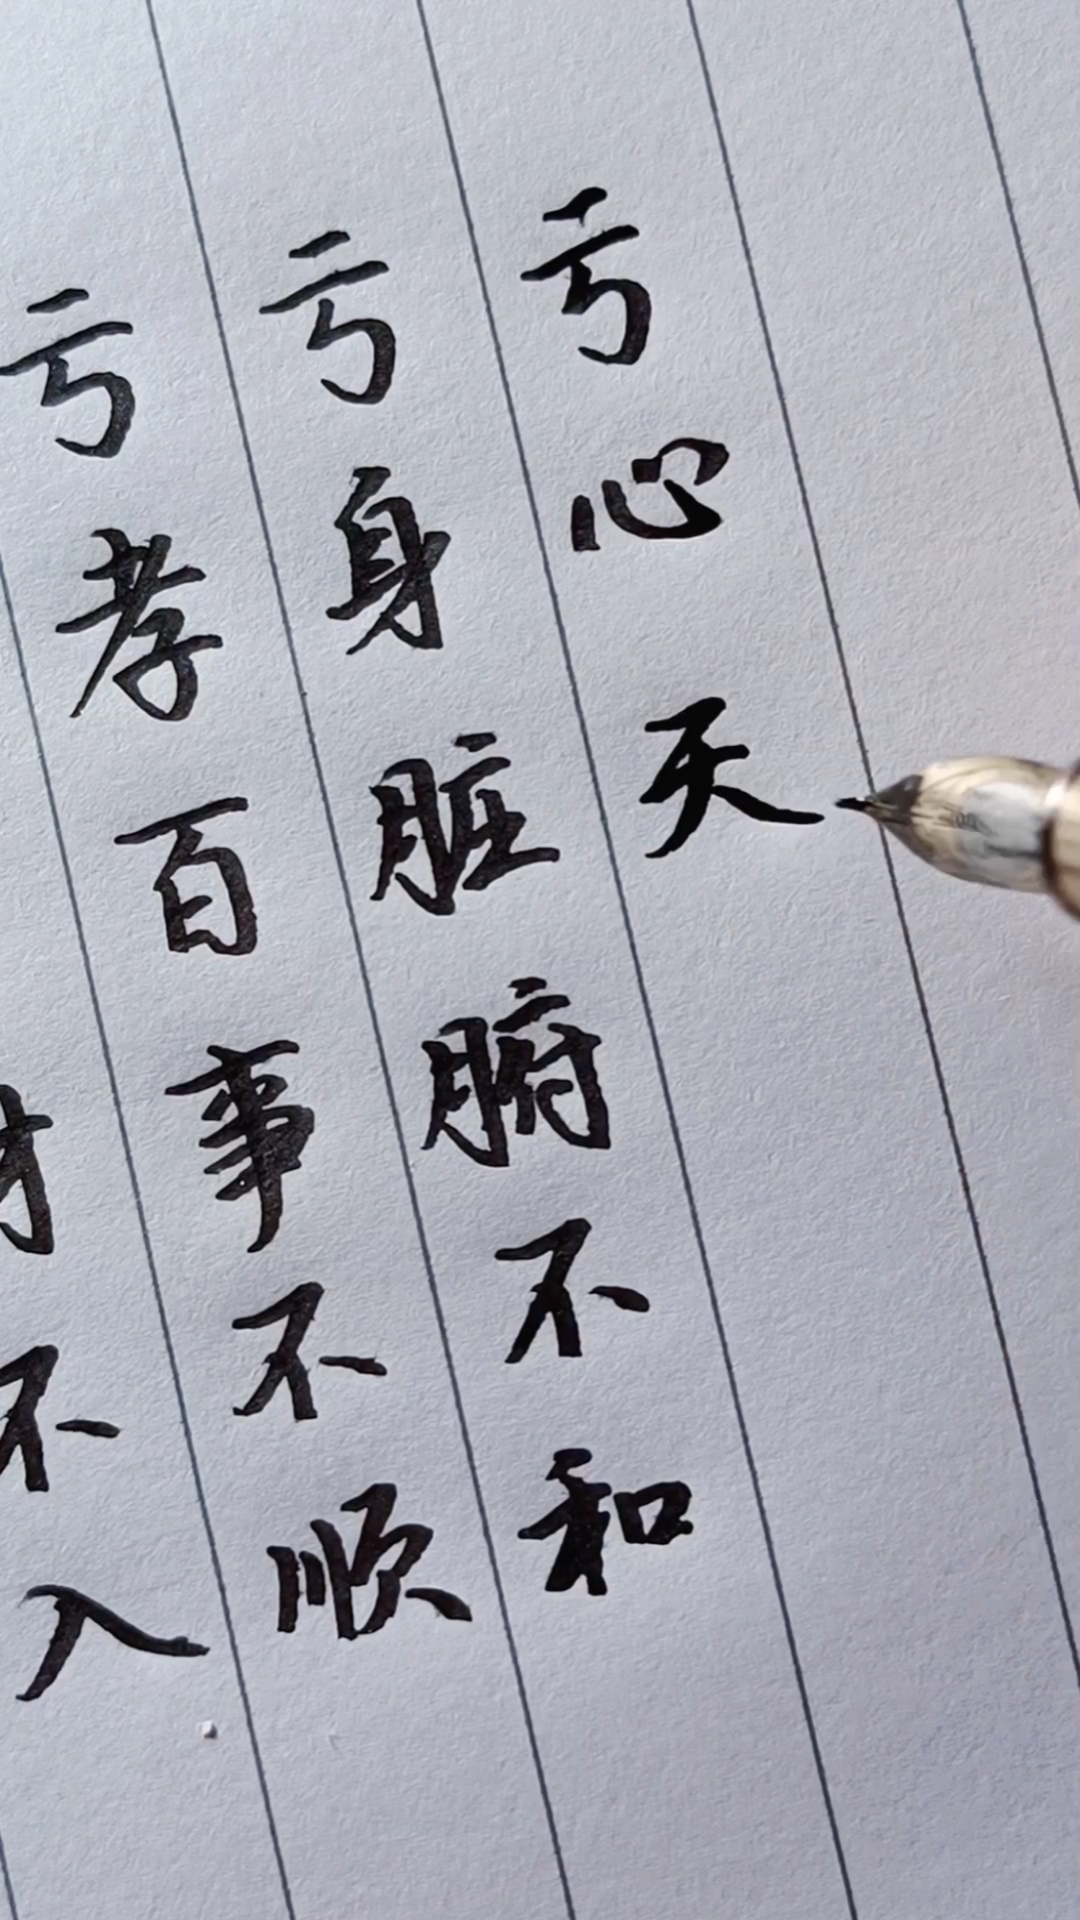 不入
亏孝百事不顺
亏身脏腑不和
亏心天